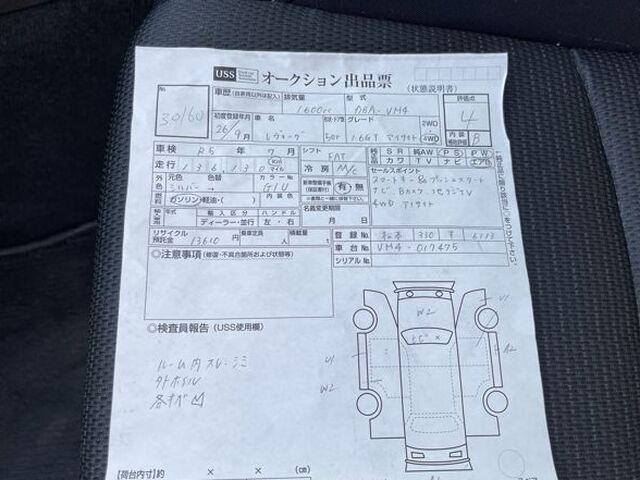 USS オークション出品票 (状態説明書)
No. 30160
車歴 (自家用以外は記入) 排気量 1600cc 型式 DBA-VM4 評価点 4
初度登録年月 26年9月 車名 レヴォーグ 5DF グレード 1.6GT アイサイト 2WD 4WD 内装補助評価 B
車検 R5年 7月 シフト FAT 純正 SR 純AW PS PW
走行 136,130 Km マイル 冷房 カワ TV ナビ エアB
外色 元色 シルバー→ 色替 カラーNo. G1U セールスポイント
燃料 ガソリン・軽油・( ) 内装色 新車整備手帳(保証書付) 有・無 スマートキー&プッシュスタート
ナビ Bカメラ 地デジTV
4WD アイサイト
輸入車 年式 輸入区分 ディーラー・並行 ハンドル 左・右 名義変更期限 月 日
リサイクル預託金 13610円 乗車定員 人 積載量 t 登録No. 松本 330
車台No. VM4-017475
シリアルNo.
◎注意事項 (修復・不具合箇所および状態等)
◎検査員報告 (USS使用欄)
ルーム内スレ・シミ
外小キズ
U1
W2
トビ×
U1
W2
A2
【荷台内寸】約 × × cm